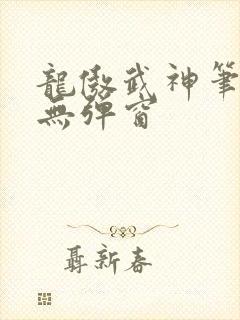 龍傲武神筆
無彈窗
聶新春